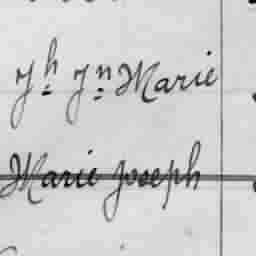 Jh Jn Marie
Marie Joseph